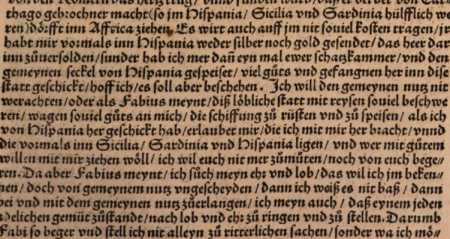 thago gebrochner macht (so im Hispania/ Sicilia vnd Sardinia hülfflich w
ren) dörfft inn Affrica ziehen. Es wirt auch auff jm nit souiel kosten tragen/ jr
habt mir vormals inn Hispania weder silber noch gold gesendet/ das heer dar
mn zůuersolden/ sunder hab ich mer dañ eyn mal ewer schatzkammer/ vnd den
gemeynen seckel von Hispania gespeiset/ viel gůts vnd gefangnen her inn dise
statt geschickt/ hoff ich/ es soll aber beschehen. Ich will den gemeynen nutz nit
verachten/ oder als Fabius meynt/ diß löbliche statt mit reysen souiel beschwe
ren/ wagen souiel gůts an mich/ die schiffung zů rüsten vnd zů speisen/ als ich
von Hispania her geschickt hab/ erlauber mir/ die ich mit mir her bracht/ vnnd
die vormals inn Sicilia/ Sardinia vnd Hispania ligen/ vnd wer mit gůtem
willen mit mir ziehen wöll/ ich wil euch nit mer zůmůten/ noch von euch bege-
ren. Da aber Fabius meynt/ ich sůch meyn ehr vnd lob/ das wil ich jm beken-
nen/ doch von gemeynem nutz vngescheyden/ dann ich waiß es nit baß/ dann
bei vnd mit dem gemeynen nutz zůerlangen/ ich meyn auch/ daß eynem jeden
adelichen gemüt zůstande/ nach lob vnd ehr zů ringen vnd zů stellen. Darumb
Fabi so beger vnd stell ich nit alleyn zů ritterlichen sachen/ sonder wa ich möv